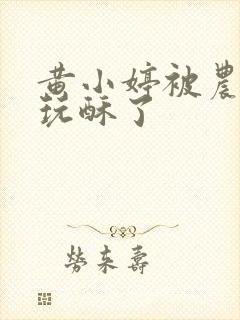 黄小婷被農
玩酥了
勞來壽